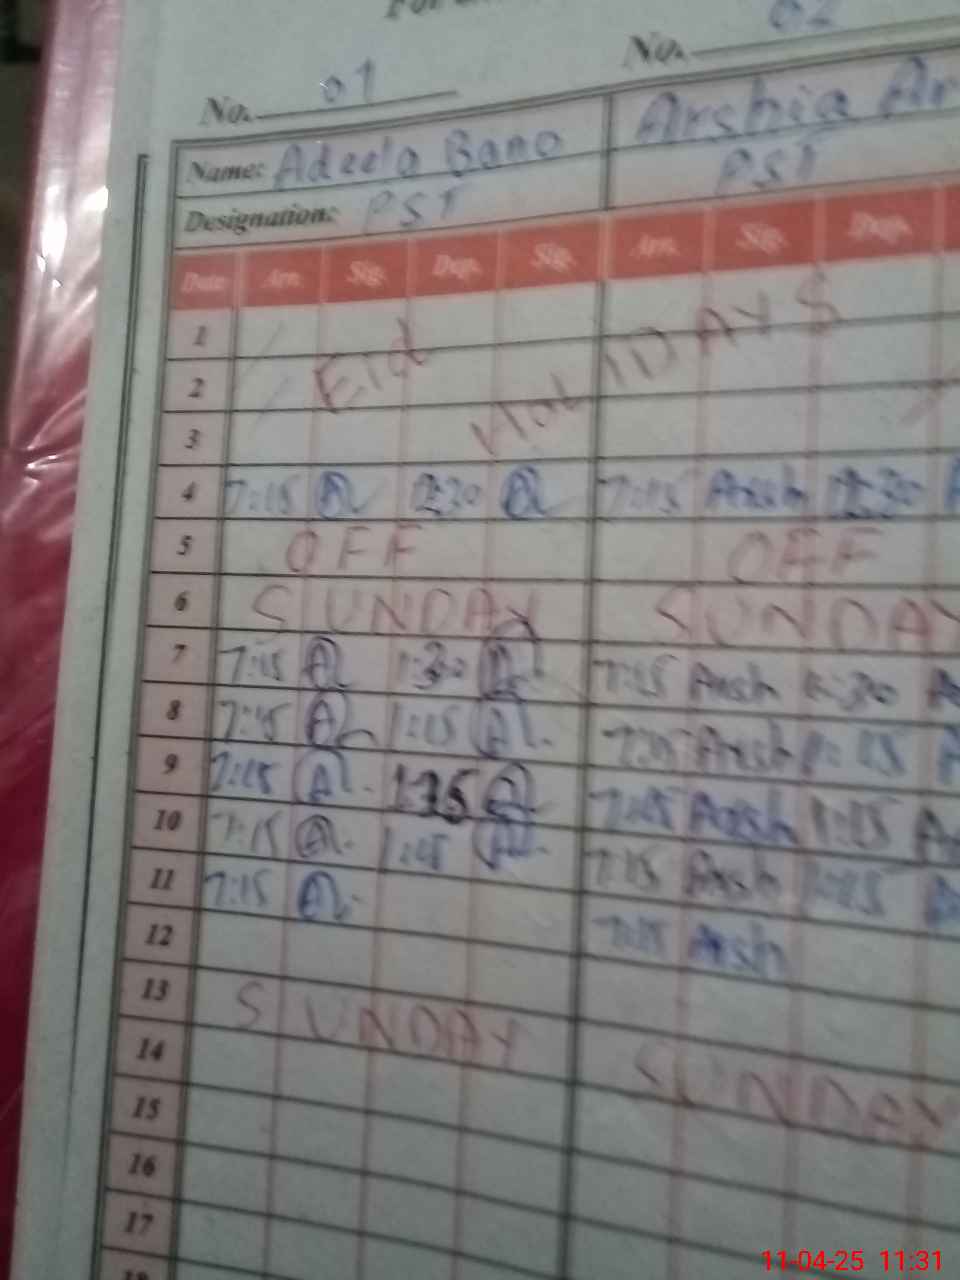 For
No. 01 No. 02
Name: Adeela Bano Arshia Ar
Designation: PST PST
Date Arr. Sig. Dep. Sig. Arr. Sig. Dep.
1
2 Eid HOLIDAYS
3
4 7:15 A 12:30 A 7:15 Arsh 12:30
5 OFF OFF
6 SUNDAY SUNDAY
7 7:15 A 1:30 A 7:15 Arsh 1:30
8 7:15 A 1:15 A 7:15 Arsh 1:15
9 7:15 A 1:15 A 7:15 Arsh 1:15
10 7:15 A 1:15 A 7:15 Arsh 1:15
11 7:15 A 7:15 Arsh
12
13 SUNDAY SUNDAY
14
15
16
17
18
11-04-25 11:31